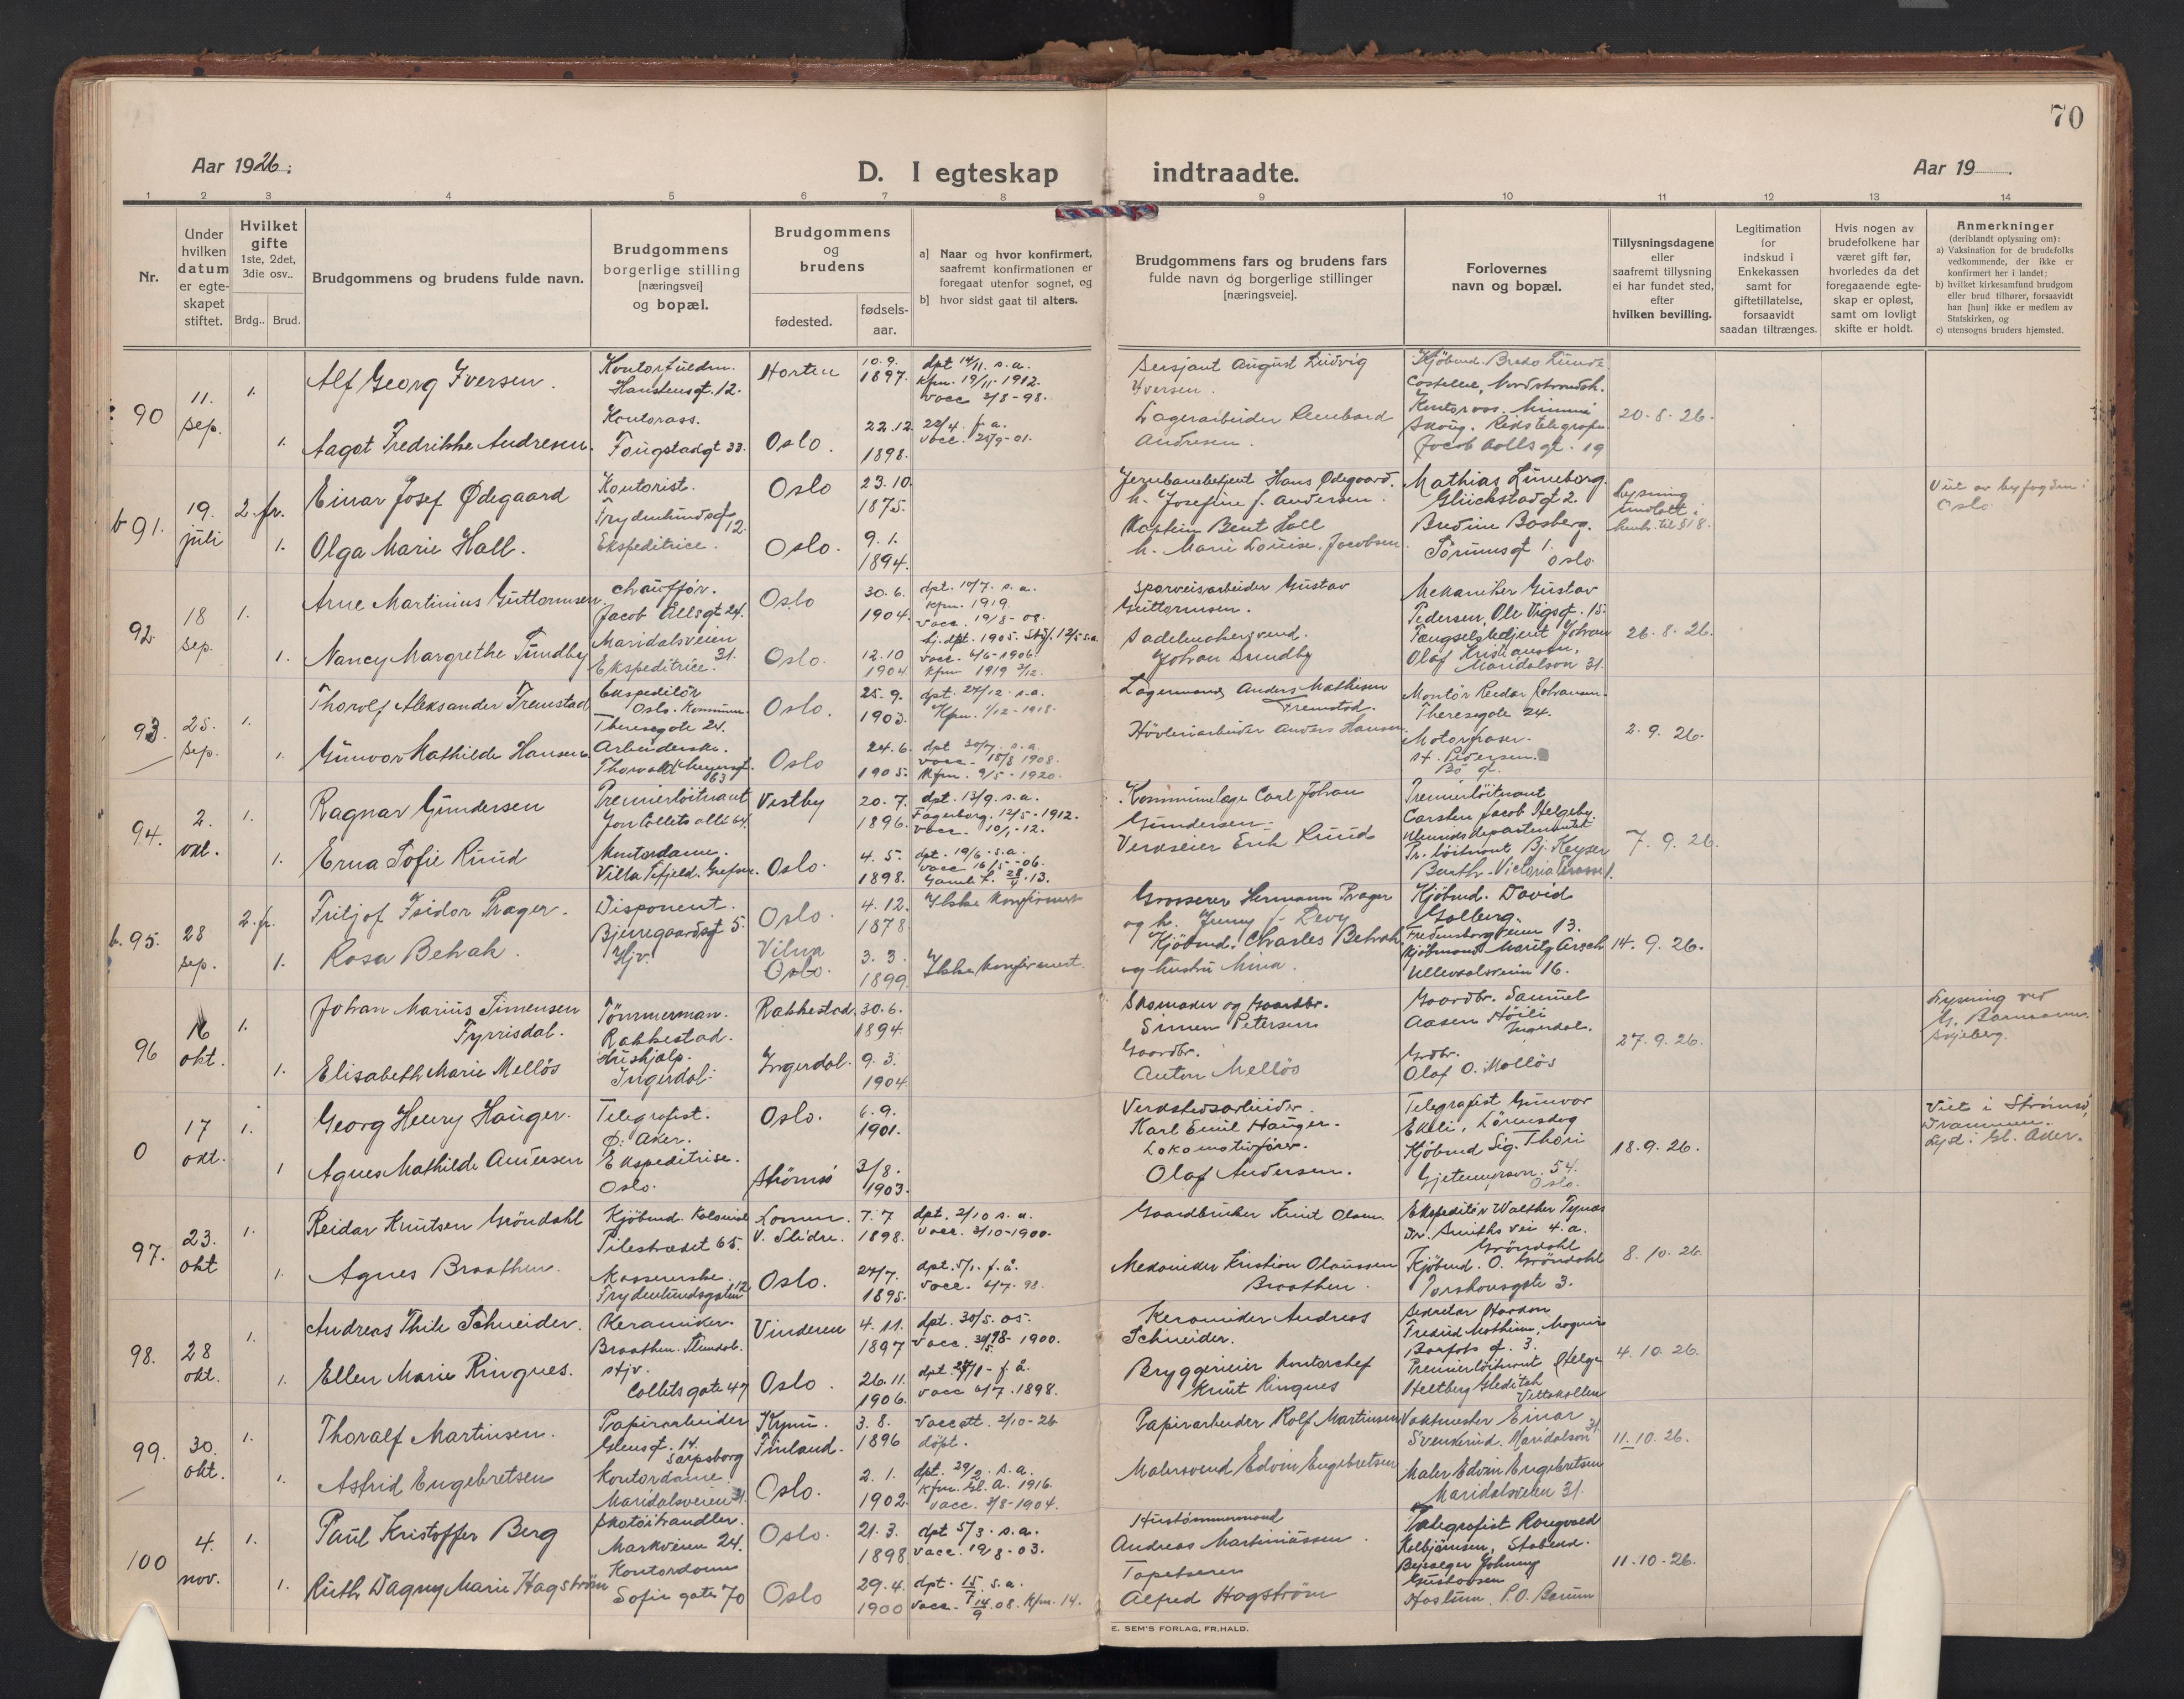 70
Aar 1926.
D. I egteskap indtraadte.
Aar 19
1 2 3 4 5 6 7 8 9 10 11 12 13 14
Nr.
Under hvilken datum er egteskapet stiftet.
Hvilket gifte 1ste, 2det, 3die osv..
Brdg.. Brud.
Brudgommens og brudens fulde navn.
Brudgommens borgerlige stilling [næringsvei] og bopæl.
Brudgommens og brudens
fødested.
fødsels-aar.
a] Naar og hvor konfirmert, saafremt konfirmationen er foregaat utenfor sognet, og
b] hvor sidst gaat til alters.
Brudgommens fars og brudens fars fulde navn og borgerlige stillinger [næringsveie].
Forlovernes navn og bopæl.
Tillysningsdagene eller saafremt tillysning ei har fundet sted, efter hvilken bevilling.
Legitimation for indskud i Enkekassen samt for giftetillatelse, forsaavidt saadan tiltrænges.
Hvis nogen av brudefolkene har været gift før, hvorledes da det foregaaende egteskap er opløst, samt om lovligt skifte er holdt.
Anmerkninger
(deriblandt oplysning om):
a) Vaksination for de brudefolks vedkommende, der ikke er konfirmert her i landet;
b) hvilket kirkesamfund brudgom eller brud tilhører, forsaavidt han [hun] ikke er medlem av Statskirken, og
c) utensogns bruders hjemsted.
90
11. sep.
1.
Alf Georg Iversen.
Hanstensgt. 12.
Horten
10.9. 1897.
dpt 14/11. s.a.
kfm. 19/11 1912.
vacc 2/8-98.
Sersjant August Ludvig Iversen.
20.8.26.
1.
Aagot Fredrikke Andresen.
Kontorass.
Fougstadgt 33.
Oslo.
22.12. 1898.
22/4. f.a.
vacc. 25/9-01.
Lagerarbeider Andresen.
Jacob Aallsgt. 19
b 91.
19. juli
2. fr.
Einar Josef Ødegaard
Kontorist.
Frydenlundsgt 12.
Oslo
23.10. 1875.
Jernbanebetjent Hans Ødegaard.
h. Josefine f. Andersen.
Mathias Luneborg.
Glückstadgt 2.
Lysning
Viet av byfogden i Oslo
1.
Olga Marie Hall.
Ekspeditrice.
Oslo.
9.1. 1894.
Kaptein Bent Hall
h. Marie Louise Jacobsen.
Sörumsgt 1. Oslo
92.
18 sep.
1.
Arne Martinius Guttormsen.
Chauffør.
Jacob Allsgt 24.
Oslo
30.6. 1904.
dpt. 10/7. s.a.
kfm. 1919.
vacc. 19/8-08.
Sporveisarbeider Gustav Guttormsen.
Mekaniker Gustav Pedersen, Ole Vigsgt. 15.
26.8.26.
1.
Nancy Margrethe Sundby
Maridalsveien 31.
Ekspeditrice.
Oslo.
12.10 1904
vacc. 6/6-1906.
kfm 1919
Sadelmakersvend.
Johan Sundby
Fængselsbetjent Johan Olaf Kristiansen,
Maridalsvn 31.
93.
25. sep.
1.
Thorolf Aleksander Fremstad
Ekspeditör
Oslo Kommune.
Theresegate 24.
Oslo.
25.9. 1903.
dpt. 27/12. s.a.
Kfm. 1/12-1918.
Lagermand Anders Mathisen Fremstad.
Montör Reidar Johansen.
Theresegate 24.
2.9.26.
1.
Gunvor Mathilde Hansen
Arbeiderske.
Thorvald Meyersgt. 63
Oslo
24.6. 1905.
dpt 30/7. s.a.
vacc. 15/8 1908.
Kfm. 9/5-1920.
Hövleriarbeider Anders Hansen.
94.
2. okt.
1.
Ragnar Gundersen
Premierløitnant
Jon Collets alle 64.
Vestby
20.7. 1896.
dpt. 13/9. s.a.
Fagerborg. 12/5-1912.
vacc. 10/1-12.
Kommunelæge Carl Johan Gundersen.
Premierløitnant
Carsten Jacob Helgeby.
7.9.26.
1.
Erna Sofie Ruud
Kontordame.
Grefsen.
Oslo.
4.5. 1898.
dpt. 19/6. s.a.
vacc 16/5-06.
Verkseier Erik Ruud
Pr. løitnant Bj. Keyser Barth. Victoria Terasse 1.
b. 95.
28 sep.
2. fr.
Fritjof Isidor Prager.
Disponent.
Bjerregaardsgt 5.
Oslo.
4.12. 1878
Ikke konfirmert
Grosserer Hermann Prager
og h. Jenny f. Levy
Kjöbmd. David Golberg.
Fredensborgveien 13.
14.9.26.
1.
Rosa Behak.
Hjv.
Vilna
Oslo.
3.3. 1899
Ikke konfirmert.
Kjöbmd. Charles Behak
og hustru Mina.
Ullevaalsveien 16.
96
16 okt.
1.
Johan Marius Simensen Fyrrisdal.
Tömmerman.
Rakkestad.
Rakkestad
30.6. 1894
Skomaker og Gaardbr.
Simen Petersen
Gaardbr. Samuel Aasen Höili
Ingerdal.
27.9.26.
Lysning ved
Skjeberg.
1.
Elisabeth Marie Mellös
Hushjælp.
Ingerdal.
Ingerdal.
9.3. 1904
Gaardbr.
Anton Mellös
Grdbr.
Olaf O. Mellös
0
17 okt.
1.
Georg Henry Hauger.
Telegrafist.
Ø. Aker.
Oslo.
6.9. 1901.
Verkstedsarbeider.
Karl Emil Hauger.
Telegrafist Gunvor Ekeli, Lörenskog
18.9.26.
Viet i Strømsö, Drammen.
Lyst i Gl. Aker.
1
Agnes Mathilde Andersen
Ekspeditrise.
Oslo.
Strömsö
3/8. 1903.
Lokomotivförer.
Olaf Andersen.
Kjöbmd Sig. Thori
Gjetemyrsvn. 54. Oslo.
97.
23. okt
1.
Reidar Knutsen Gröndahl
Kjöbmd. Kolonial
Pilestrædet 65.
V. Slidre.
7.7 1898.
dpt. 2/10 s.a.
vacc. 3/10-1900.
Gaardbruker Knut Olsen.
Ekspeditör Walther
8.10.26.
1.
Agnes Braathen.
Frydenlundsgaten 12
Oslo.
27/7. 1895.
dpt. 5/1. f.å.
vacc. 6/7. 98.
Mekaniker Kristian Olaussen Braathen.
Gröndahl
Kjöbmd. O. Gröndahl
Torshovsgate 3.
98.
28 okt.
1.
Andreas Thile Schneider.
Keramiker.
Vinderen
4.11. 1897
dpt. 30/5. 05.
vacc. 1900.
Keramiker Andreas Schneider.
Sekretær
4.10.26.
1.
Ellen Marie Ringnes.
Hjv.
Collets gate 47
Oslo.
26.11. 1906.
vacc 6/7. 1898.
Bryggerieier kontorchef
Knut Ringnes
Premierløitnant Helge Heltberg Gleditch
Vettakollen
99.
30. okt.
1.
Thoralf Martinsen.
Papirarbeider
Glensgt. 14. Sarpsborg
Kymi.
Finland.
3.8. 1896
Vacc att. 2/10-26
döpt.
Papirarbeider Rolf Martinsen
Vaktmester Einar Svenkerud. Maridalsvn 31
11.10.26.
1.
Astrid Engebretsen
Kontordame
Maridalsveien 31.
Oslo.
2.1. 1902.
dpt. 29/2. s.a.
Kfm. Gl. A. 1916.
vacc. 3/8-1904.
Malersvend Edvin Engebretsen
Maler Edvin Engebretsen
Maridalsveien 31.
100
4. nov.
1.
Paul Kristoffer Berg
Skotöihandler.
Markveien 24.
Oslo.
21.3. 1898
dpt 5/3. s.a.
vacc. 19/8-03.
Hustömmermand
Andreas Martiniussen.
Telegrafist Rongvald Kolbjörnsen, Stabekk.
11.10.26.
1.
Ruth Dagny Marie Hagström
Kontordame
Sofies gate 70
Oslo
29.4. 1900
dpt. 15/7. s.a.
vacc. 14/9. 08. Kfm. 14.
Tapetserer
Alfred Hagström
Gustavsen
Haslum. P.O. Bærum
E. SEM'S FORLAG, FR.HALD.